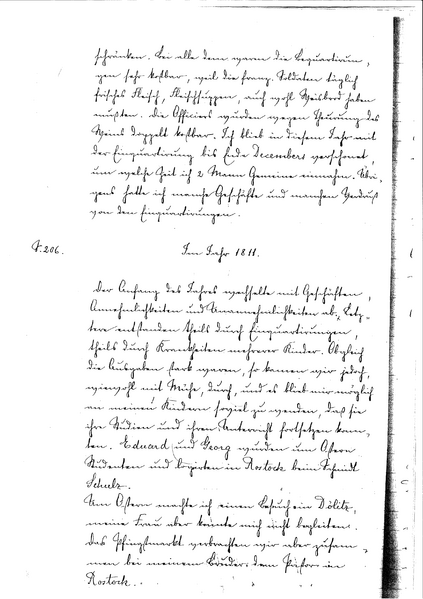 schränken. Bei alle dem waren die Bequartirun,
gen sehr kostbar, weil die franz. Soldaten täglich
frisches Fleisch, Fleischsuppen, auch wohl Weisbrod haben
mußten. Die Officiers wurden wegen Theurung des
Weins doppelt kostbar. Ich blieb in diesem Jahr mit
der Einquartirung bis Ende Decembers verschonet,
um welche Zeit ich 2 Mann Gemeine einnahm. Übri,
gens hatte ich manche Geschäfte und manchen Verdruß
von den Einquartirungen.
P. 206. Im Jahr 1811.
Der Anfang des Jahres wechselte mit Geschäften,
Annehmlichkeiten und Unannehmlichkeiten ab, Letz,
tere entstanden theils durch Einquartirungen,
theils durch Krankheiten mehrerer Kinder. Obgleich
die Ausgaben stark waren, so kamen wir jedoch,
wiewohl mit Mühe, durch, und es blieb mir möglich
an meinen Kindern soviel zu wenden, daß sie
ihre Studien und ihren Unterricht fortsetzen konn,
ten. Eduard und Georg wurden um Ostern
Studenten und logirten in Rostock beim Schmidt
Schulz.
Um Ostern machte ich einen Besuch in Dölitz,
meine Frau aber konnte mich nicht begleiten.
Das Pfingstmarkt verbrachten wir aber zusam,
men bei meinem Bruder, dem in
Rostock.